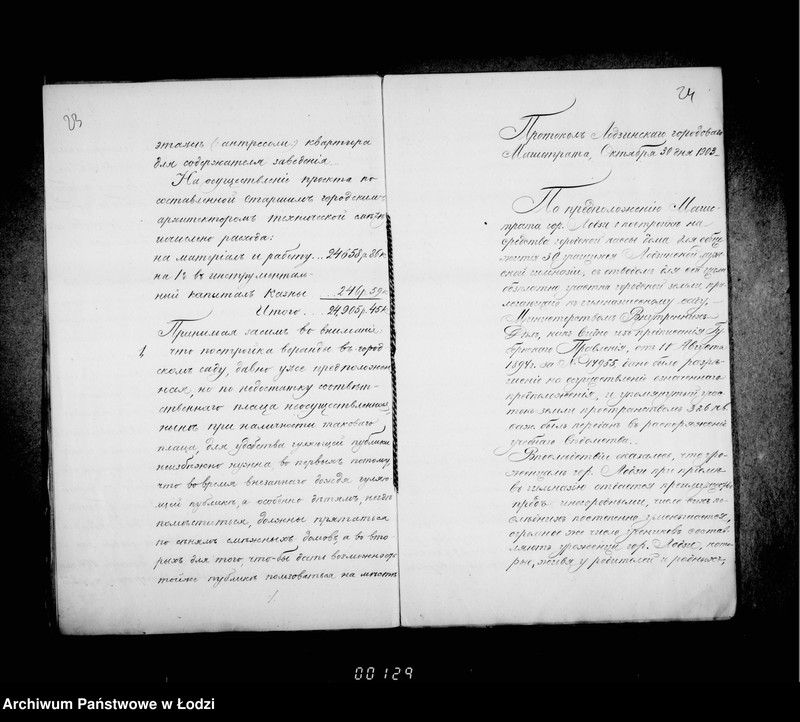 23
этажѣ (антресоли) квартира
для содержателя заведенія.
На осуществленіе проекта по
составленной старшимъ городскимъ
архитекторомъ технической смѣтѣ
исчислено расхода:
на матеріалъ и работу... 24658 р. 86 к.
на 1% въ инструменталь-
ный капиталъ казны ... 246 р. 59 к.
Итого... 24,905 р. 45 к.
Принимая засимъ во вниманіе
что постройка веранды въ город
скомъ саду, давно уже предположен
ная, но по недостатку соотвѣт-
ственнаго плаца неосуществленная,
нынѣ при наличности таковаго
плаца, для удобства гуляющей публики
неизбѣжно нужна, во первыхъ потому,
что во время внезапнаго дождя гуляю-
щей публикѣ, а особенно дѣтямъ, негдѣ
помѣститься, должны прятаться
по сѣнямъ смежныхъ домовъ, а во вто-
рыхъ для того, что-бы дать возможность
той же публикѣ пользоваться на мѣстѣ
24
Протоколъ Лодзинскаго городоваго
Магистрата, Октября 30 дня 1903
По предположенію Маги-
страта гор. Лодзи о постройкѣ на
средства городской кассы дома для обще
житія 50 учащихся Лодзинской муж-
ской гимназіи, съ отводомъ для сей цѣли
безплатно участка городской земли, при-
легающаго къ гимназическому саду,
Министерствомъ Внутреннихъ
Дѣлъ, какъ видно изъ предписанія Гу
бернскаго Правленія, отъ 10 Августа
1894 г. за № 4955, дано было разрѣ-
шеніе на осуществленіе означеннаго
предположенія, и упомянутый учас
токъ земли пространствомъ 326 кв.
саж. былъ переданъ въ распоряженіе
учебнаго вѣдомства.
Впослѣдствіи оказалось, что уро-
женцамъ гор. Лодзи при пріемѣ
въ гимназію отдается преимущество
предъ иногородными, число коихъ по-
слѣднихъ постепенно уменьшается,
огромное же число учениковъ состав-
ляютъ уроженцы гор. Лодзи, кото-
рые, живя у родителей и родныхъ,
00129
Archiwum Państwowe w Łodzi